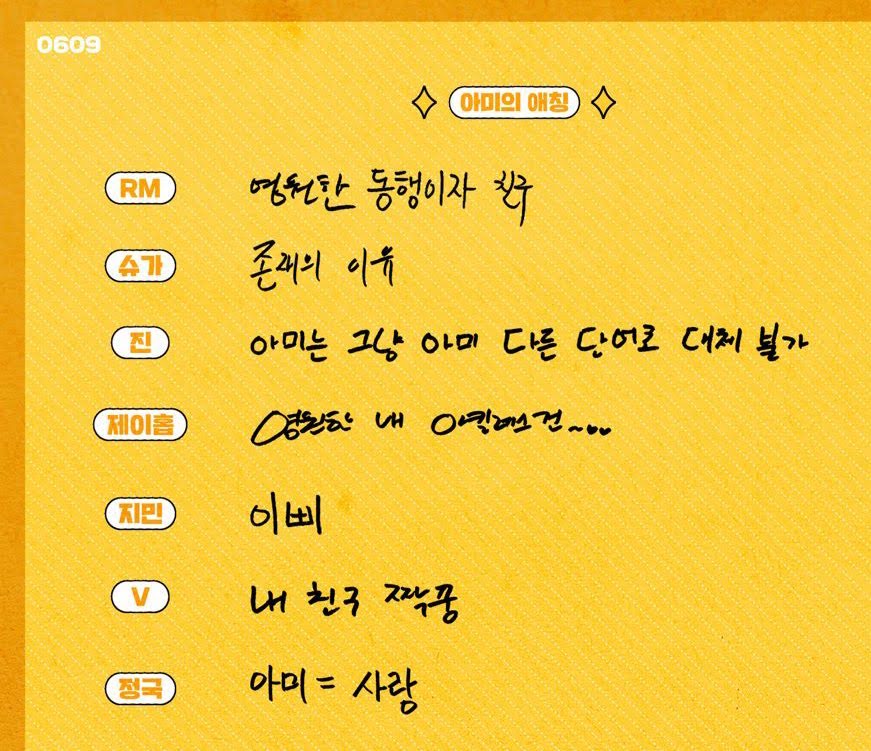 0609
아미의 애칭
RM 영원한 동행이자 친구
슈가 존재의 이유
진 아미는 그냥 아미 다른 단어로 대체 불가
제이홉 영원한 내 아킬레스건~..
지민 이삐
V 내 친구 짝꿍
정국 아미 = 사람